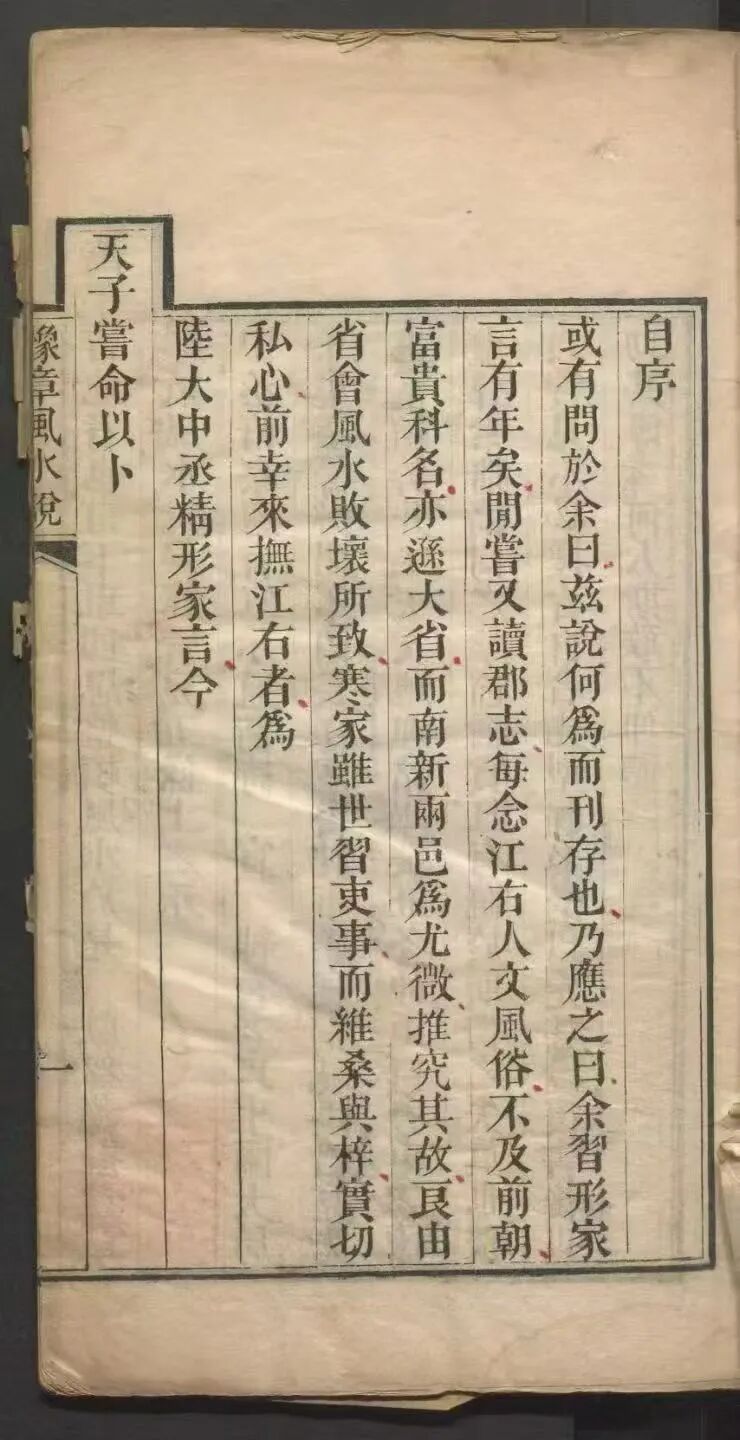 自序
或有問於余曰茲說何爲而刊存也乃應之曰余習形家
言有年矣閒嘗又讀郡志每念江右人文風俗不及前朝
富貴科名亦遜大省而南新兩邑爲尤微推究其故良由
省會風水敗壞所致寒家雖世習吏事而維桑與梓實切
私心前幸來撫江右者爲
陸大中丞精形家言今
天子嘗命以卜
豫章風水說
一